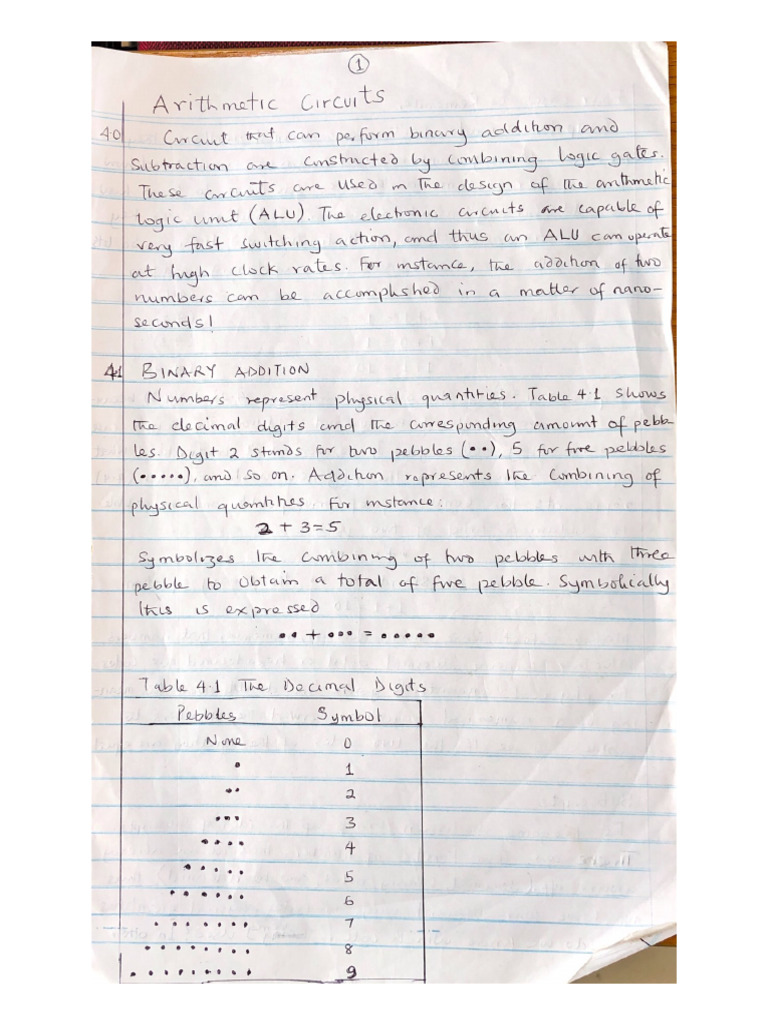 1
Arithmetic Circuits
40 Circuit that can perform binary addition and
Subtraction are constructed by combining logic gates.
These circuits are used in the design of the arithmetic
logic unit (ALU). The electronic circuits are capable of
very fast switching action, and thus an ALU can operate
at high clock rates. For instance, the addition of two
numbers can be accomplished in a matter of nano-
seconds!
41 BINARY ADDITION
Numbers represent physical quantities. Table 4.1 shows
the decimal digits and the corresponding amount of pebb-
les. Digit 2 stands for two pebbles (••), 5 for five pebbles
(•••••), and so on. Addition represents the combining of
physical quantities. For instance:
2 + 3 = 5
Symbolizes the combining of two pebbles with three
pebble to obtain a total of five pebble. Symbolically
this is expressed
•• + ••• = •••••
Table 4.1 The Decimal Digits
Pebbles Symbol
None 0
• 1
•• 2
••• 3
•••• 4
••••• 5
•••••• 6
••••••• 7
•••••••• 8
••••••••• 9